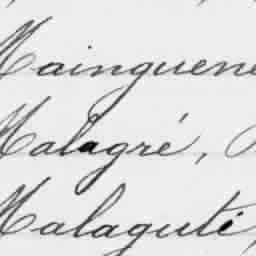 Mainguene
Malagré,
Malaguti,